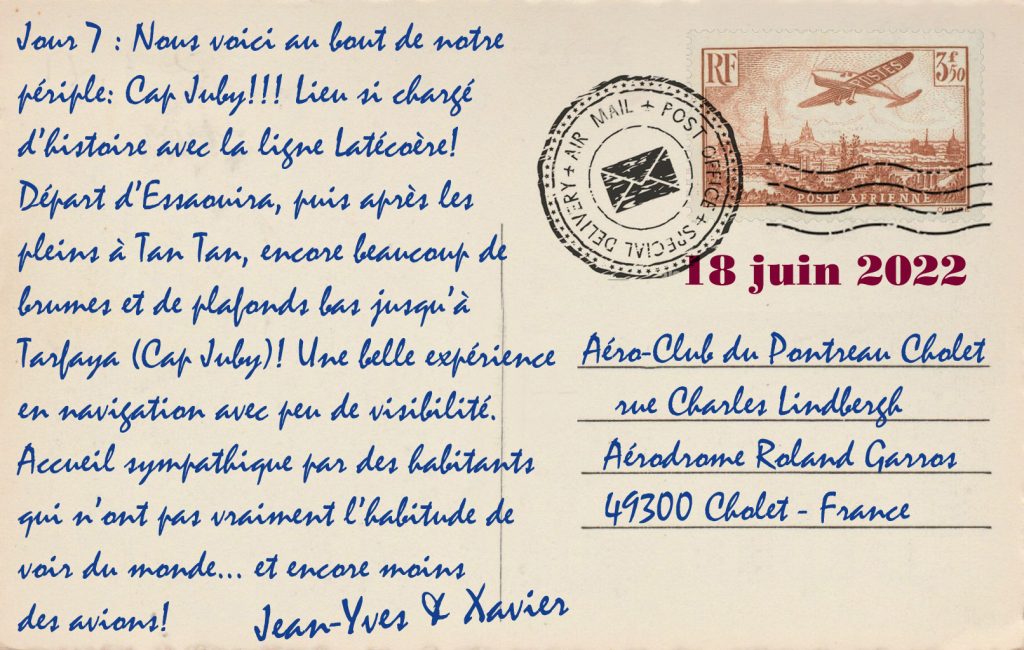 Jour 7 : Nous voici au bout de notre
périple: Cap Juby!!! Lieu si chargé
d'histoire avec la ligne Latécoère!
Départ d'Essaouira, puis après les
pleins à Tan Tan, encore beaucoup de
brumes et de plafonds bas jusqu'à
Tarfaya (Cap Juby)! Une belle expérience
en navigation avec peu de visibilité.
Accueil sympathique par des habitants
qui n'ont pas vraiment l'habitude de
voir du monde... et encore moins
des avions!
Jean-Yves & Xavier
SPECIAL DELIVERY + AIR MAIL + POST OFFICE +
RF
POSTES
3f50
POSTE AÉRIENNE
18 juin 2022
Aéro-Club du Pontreau Cholet
rue Charles Lindbergh
Aérodrome Roland Garros
49300 Cholet - France